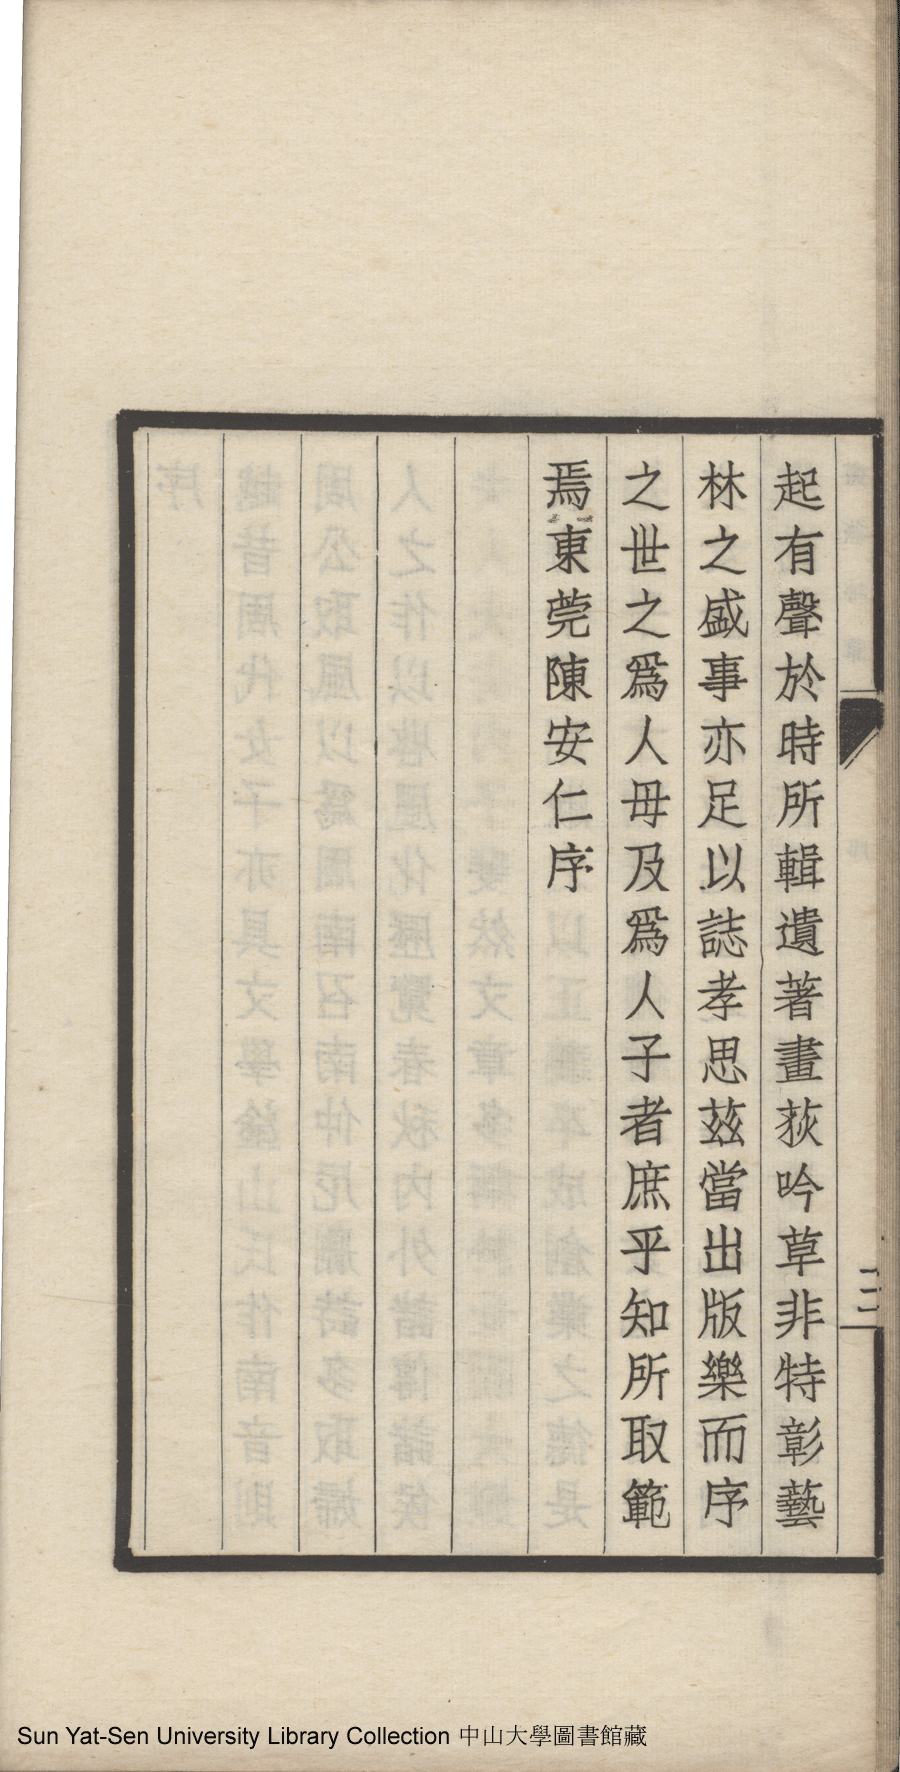 起有聲於時所輯遺著畫荻吟草非特彰藝
林之盛事亦足以誌孝思茲當出版樂而序
之世之爲人母及爲人子者庶乎知所取範
焉東莞陳安仁序
Sun Yat-Sen University Library Collection 中山大學圖書館藏